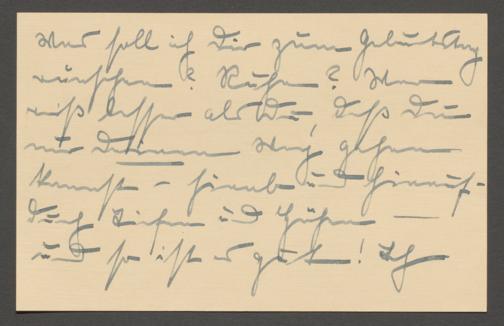 Was soll ich Dir zum Geburtstag
wünschen? Ruhe? Wer
weiß besser als Du, daß Du
nur Deinen Weg gehen
kannst – hinab und hinauf –
durch Tiefen und Höhen —
und so ist es gut! Ich